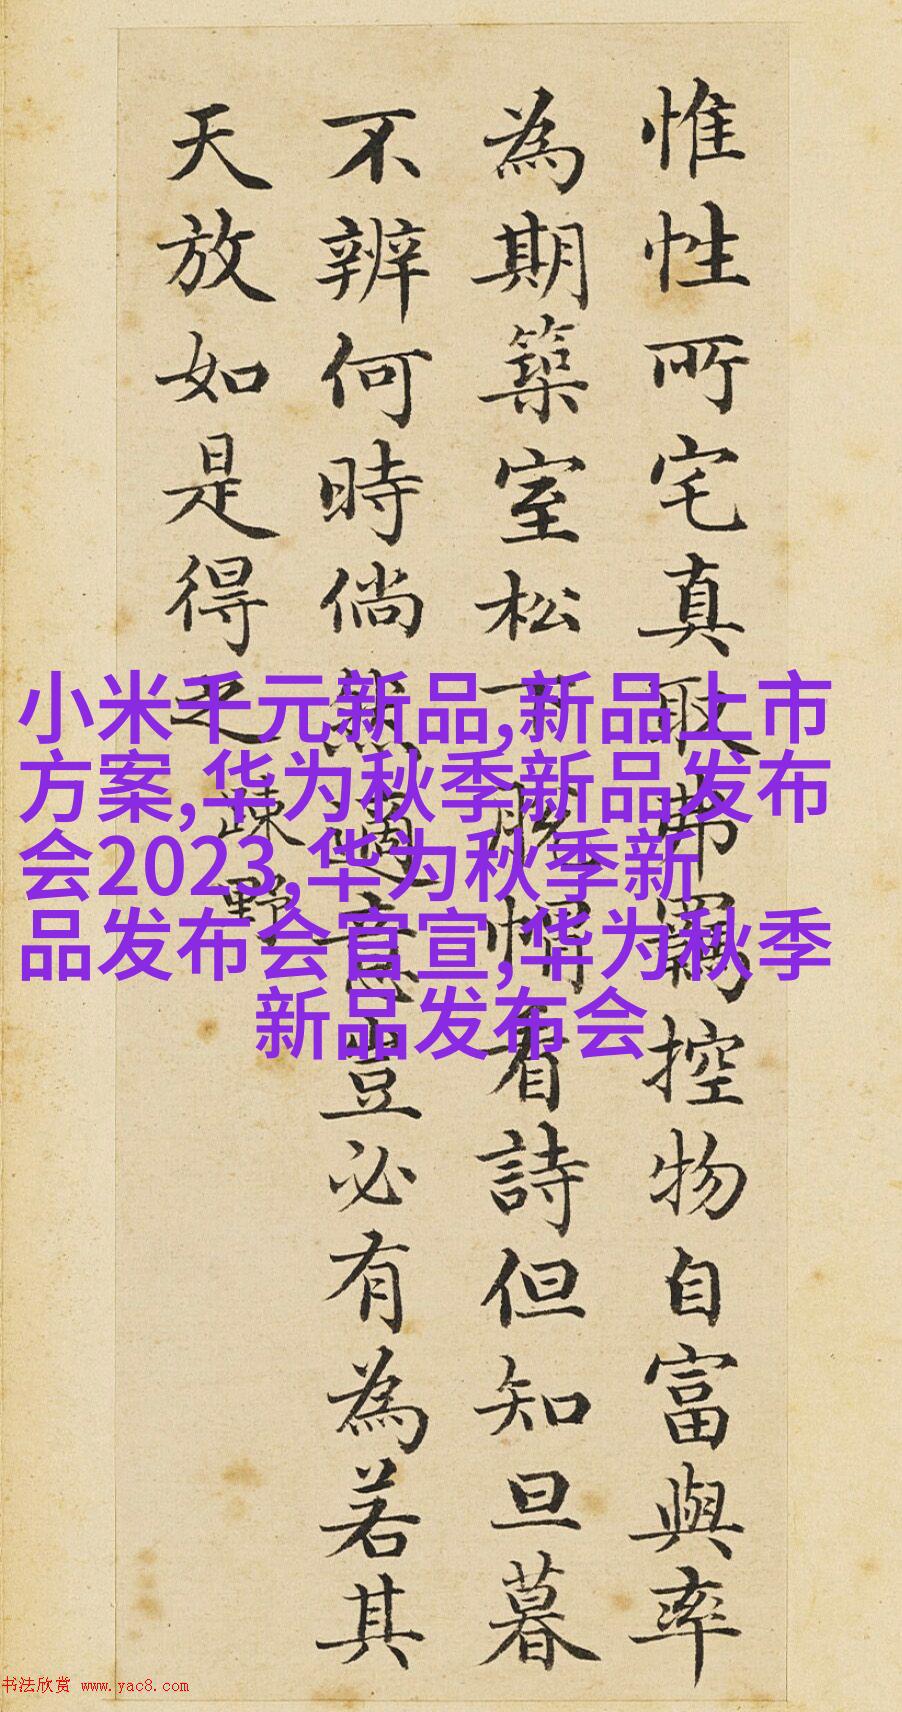 惟性所宅真取弗羈控物自富與率
為期築室松下脫帽看詩但知旦暮
不辨何時倘然適意豈必有為若其
天放如是得之疎野
小米千元新品,新品上市
方案,华为秋季新品发布
会2023,华为秋季新
品发布会官宣,华为秋季
新品发布会
书法欣赏 www.yac8.com